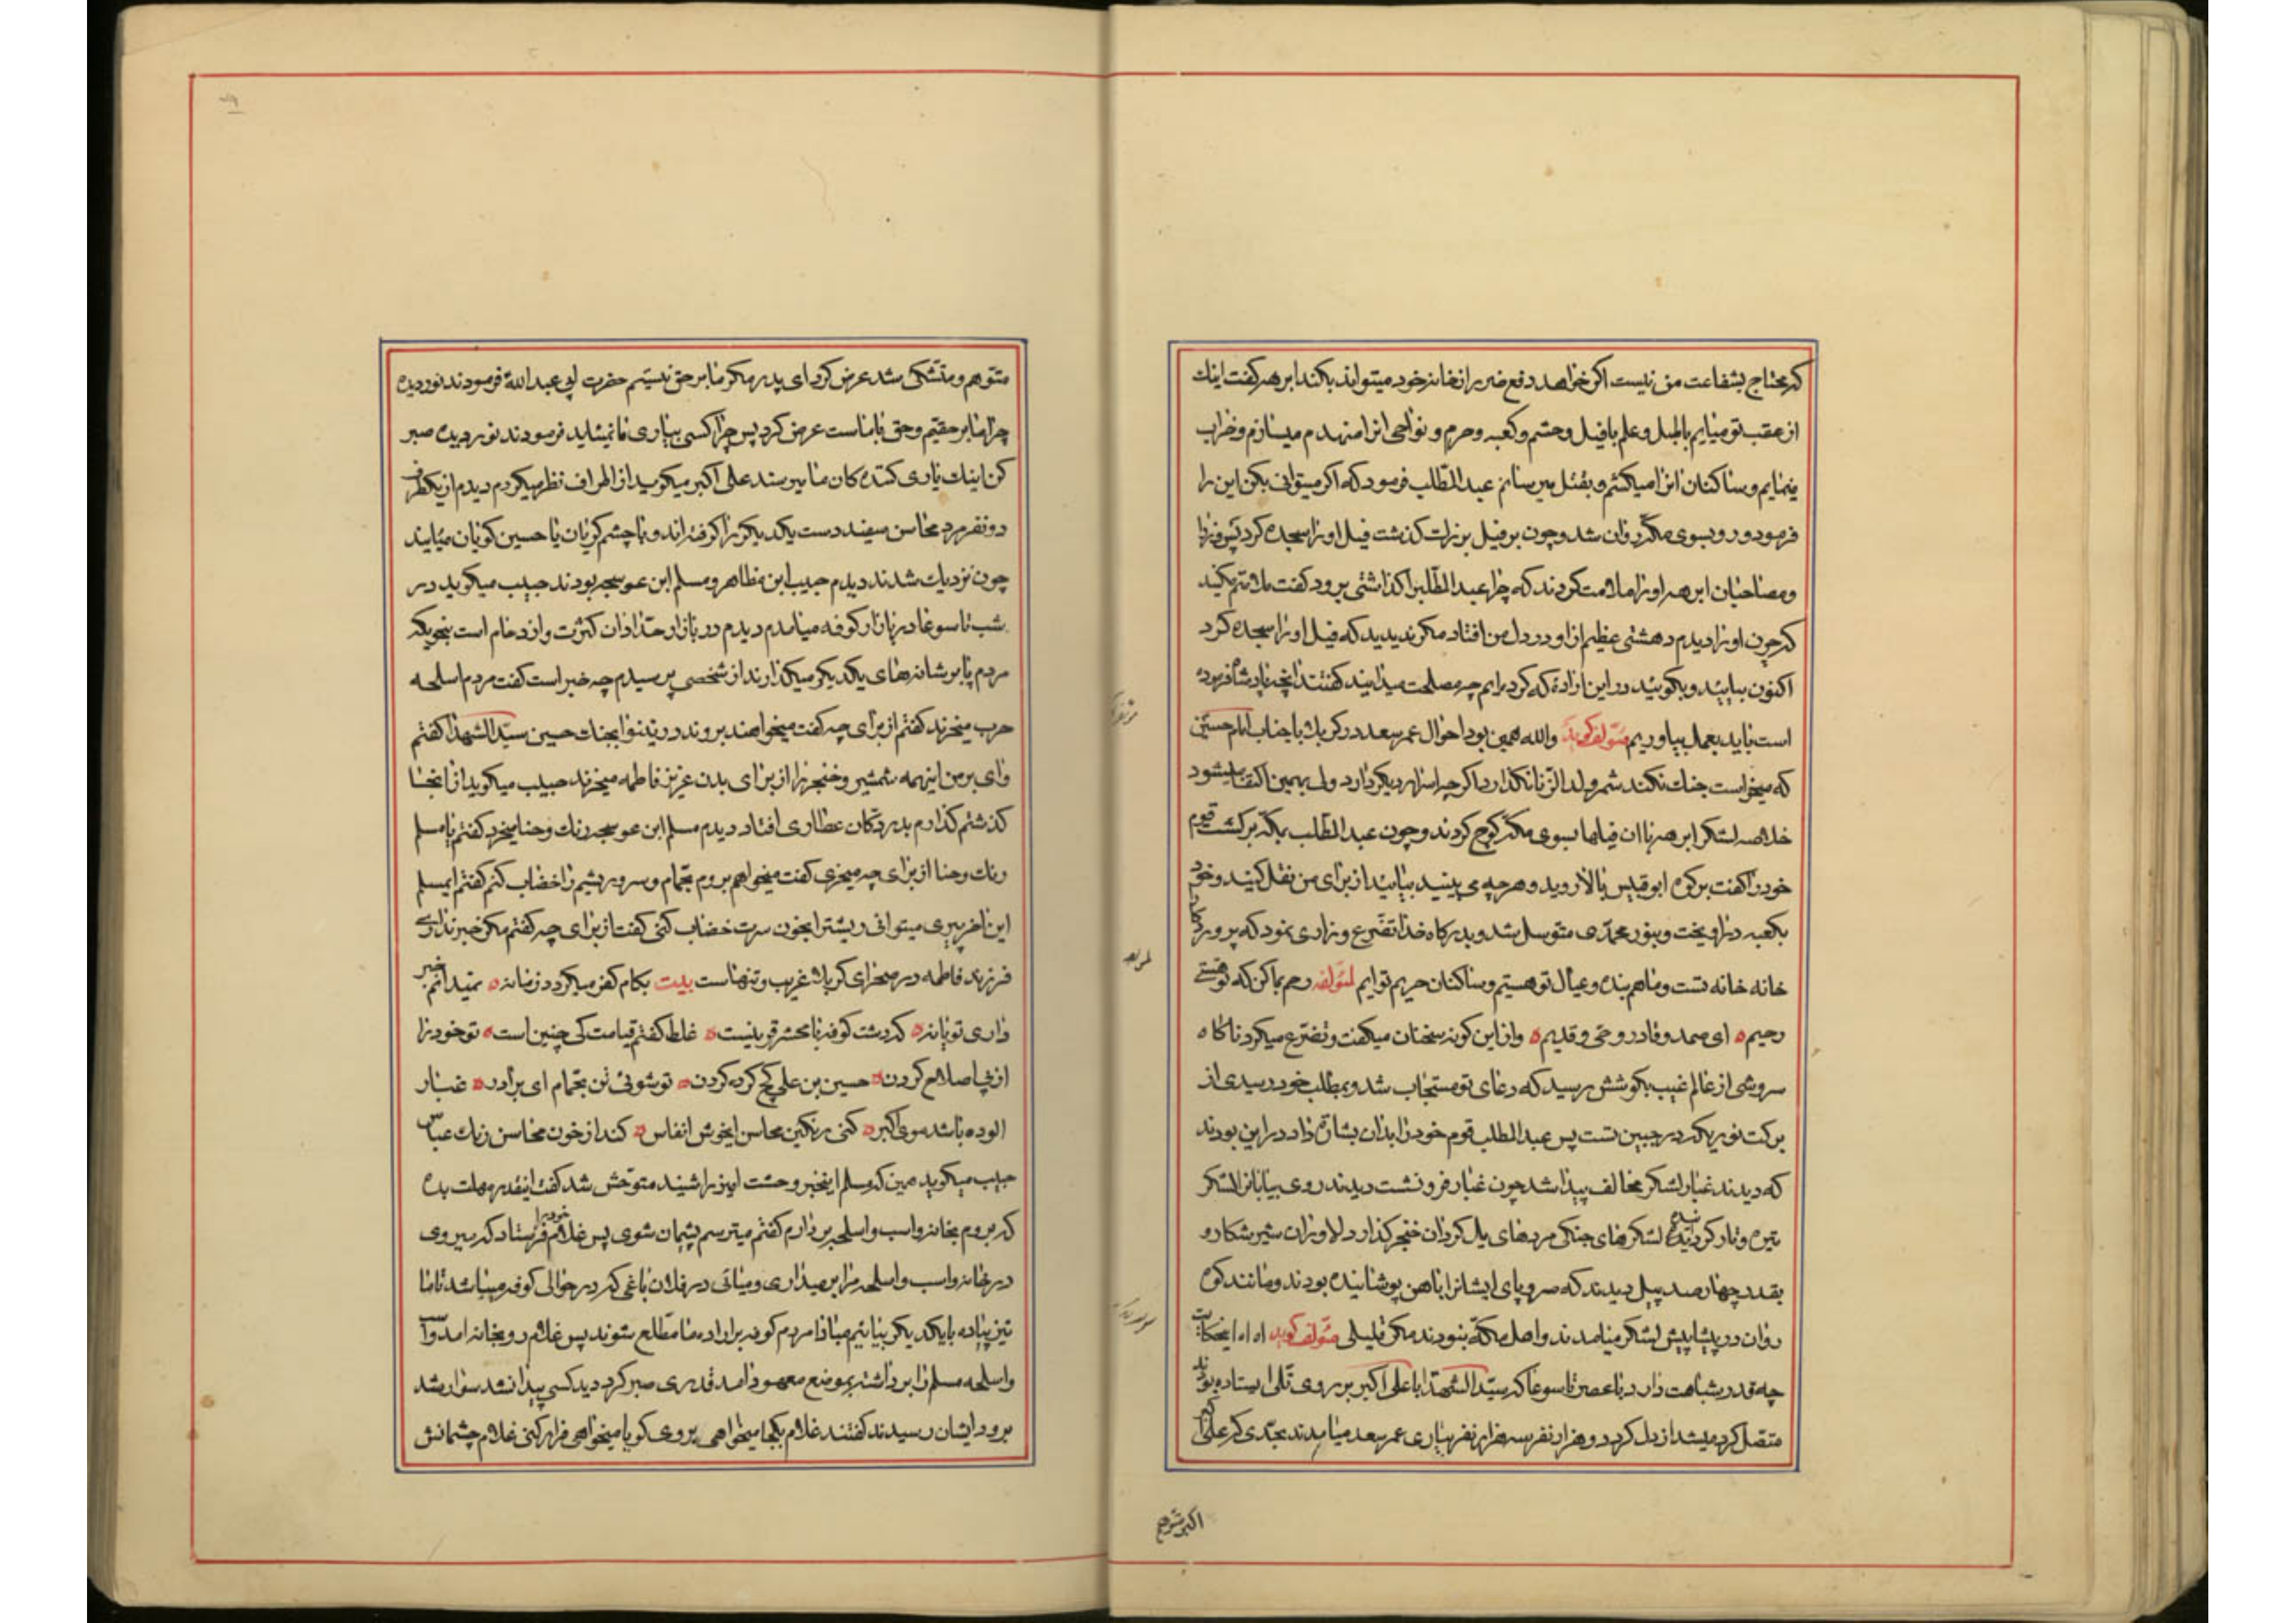 که محتاج بشفاعت من نیست اکر خواهد دفع ضرر از خانه خود میتواند بکند ابرهه کفت اینك
از عقب تو میایم با طبل و علم با فیل و حشم و کعبه و حرم و نواحی انرا منهدم میسازم و خراب
مینمایم و ساکنان انرا میکشم و بقتل میرسانم عبدالمطّلب فرمود که اکر میتوانی بکن این را
فرمود و رو بسوی مکّه روان شد و چون بر فیل بزرك کذشت فیل او را سجده کرد پس وزرا
و مصاحبان ابرهه او را ملامت کردند که چرا عبدالمطّلب را کذاشتی برود کفت ملامتم مکنید
که چون او را دیدم دهشتی عظیم از او در دل من افتاد مکر ندیدید که فیل او را سجده کرد
اکنون بیایید و بکویید در این اراده که کرده ایم چه مصلحت میدانید کفتند انچه پادشاه فرموده
است باید بعمل بیاوریم مؤلف کوید والله همین بود احوال عمر سعد در کربلا با جناب امام حسین
که میخواست جنك نکند شمر ولد الزّنا نکذارد اکر چه اسرار دیکر دارد ولی بهمین اکتفا میشود
خلاصه لشکر ابرهه با ان فیلها بسوی مکّه کوچ کردند و چون عبدالمطّلب بمکّه برکشت قوم
خود را کفت بر کوه ابوقبیس بالا روید و هر چه می بینید بیایید از برای من نقل کنید و خود
بکعبه در اویخت و بنور محمّدی متوسل شد و بدرکاه خدا تضرّع و زاری نمود که پروردکارا
خانه خانه تست و ما هم بنده و عیال تو هستیم و ساکنان حریم توایم لمؤلفه رحم بما کن که تو هستی
رحیم ای صمد و قادر و حیّ و قدیم و از این کونه سخنان میکفت و تضرّع میکرد ناکاه
سروشی از عالم غیب بکوشش رسید که دعای تو مستجاب شد و بمطلب خود رسیدی از
برکت نوریکه در جبین تست پس عبدالمطلب قوم خود را بدان بشارة داد در این بودند
که دیدند غبار لشکر مخالف پیدا شد چون غبار فرو نشست دیدند روی بیابانرا لشکر
تیره و تار کردانیده لشکرهای جنکی مردهای یال کردان خنجر کذار دلاوران شیر شکار و
بقدر چهار صد پیل دیدند که سر و پای ایشانرا باهن پوشانیده بودند و مانند کوه
روان در پیشاپیش لشکر میامدند و اصل مکّه نبودند مکر قلیلی مؤلف کوید اه اه اینحکایت
چه قدر شباهت دارد با عصر تاسوعا که سیّد الشهدا با علی اکبر بر روی تلّی ایستاده بودند
متصل کرد میشد از دل کرد دو هزار نفر سه هزار نفر بیاری عمر سعد میامدند بحدّی که علی
اکبر متوهم
متوهم و متشکی شد عرض کرد ای پدر مکر ما بر حق نیستیم حضرت ابی عبدالله فرمودند نوردیده
چرا ما بر حقیم و حق با ماست عرض کرد پس چرا کسی بیاری ما نمیاید فرمودند نوردیده صبر
کن اینك یاری کننده کان ما میرسند علی اکبر میکوید از اطراف نظر میکردم دیدم از یکطرف
دو نفر مرد محاسن سفید دست یکدیکر را کرفته اند و با چشم کریان یا حسین کویان میایند
چون نزدیك شدند دیدم حبیب ابن مظاهر و مسلم ابن عوسجه بودند حبیب میکوید در
شب تاسوعا در بازار کوفه میامدم دیدم در بازار حدّادان کثرت و ازدحام است بنحویکه
مردم پا بر شانه های یکدیکر میکذارند از شخصی پرسیدم چه خبر است کفت مردم اسلحه
حرب میخرند کفتم از برای چه کفت میخواهند بروند در نینوا بجنك حسین سیّد الشهدا کفتم
وای بر من اینهمه شمشیر و خنجر را از برای بدن عزیز فاطمه میخرند حبیب میکوید از انجا
کذشتم کذارم بدر دکّان عطّاری افتاد دیدم مسلم ابن عوسجه رنك و حنا میخرد کفتم یا مسلم
رنك و حنا از برای چه میخری کفت میخواهم بروم بحمّام و سر و ریشم را خضاب کنم کفتم ایمسلم
این اخر پیری میتوانی ریشترا بخون سرت خضاب کنی کفت از برای چه کفتم مکر خبر نداری
فرزند فاطمه در صحرای کربلا غریب و تنهاست بیت بکام کفر میکردد زمانه نمیدانم خبر
داری تو یا نه که دشت کوفه با محشر قرینست غلط کفتم قیامت کی چنین است تو خود را
از پی اصلاح کردن حسین بن علی کج کرده کردن تو شوئی تن بحمّام ای برادر غبار
الوده باشد موی اکبر کنی رنکین محاسن ایخوش انفاس کند از خون محاسن رنك عبّاس
حبیب میکوید همین که مسلم اینخبر وحشت اثر را شنید متوحّش شد کفت اینقدر مهلت بده
که بروم بخانه و اسب و اسلحه بردارم کفتم میترسم پشیمان شوی پس غلام خود را فرستاد که میروی
در خانه و اسب و اسلحه مرا بر میداری و میائی در فلان باغی که در حوالی کوفه میباشد تا ما
نیز پیاده با یکدیکر بیائیم مبادا مردم کوفه بر اراده ما مطّلع شوند پس غلام رو بخانه امد و اسب
و اسلحه مسلم را برداشته بموضع معهود امد قدری صبر کرد دید کسی پیدا نشد سوار شد
برود ایشان رسیدند کفتند غلام بکجا میخواهی بروی کویا میخواهی فرار کنی غلام چشمانش